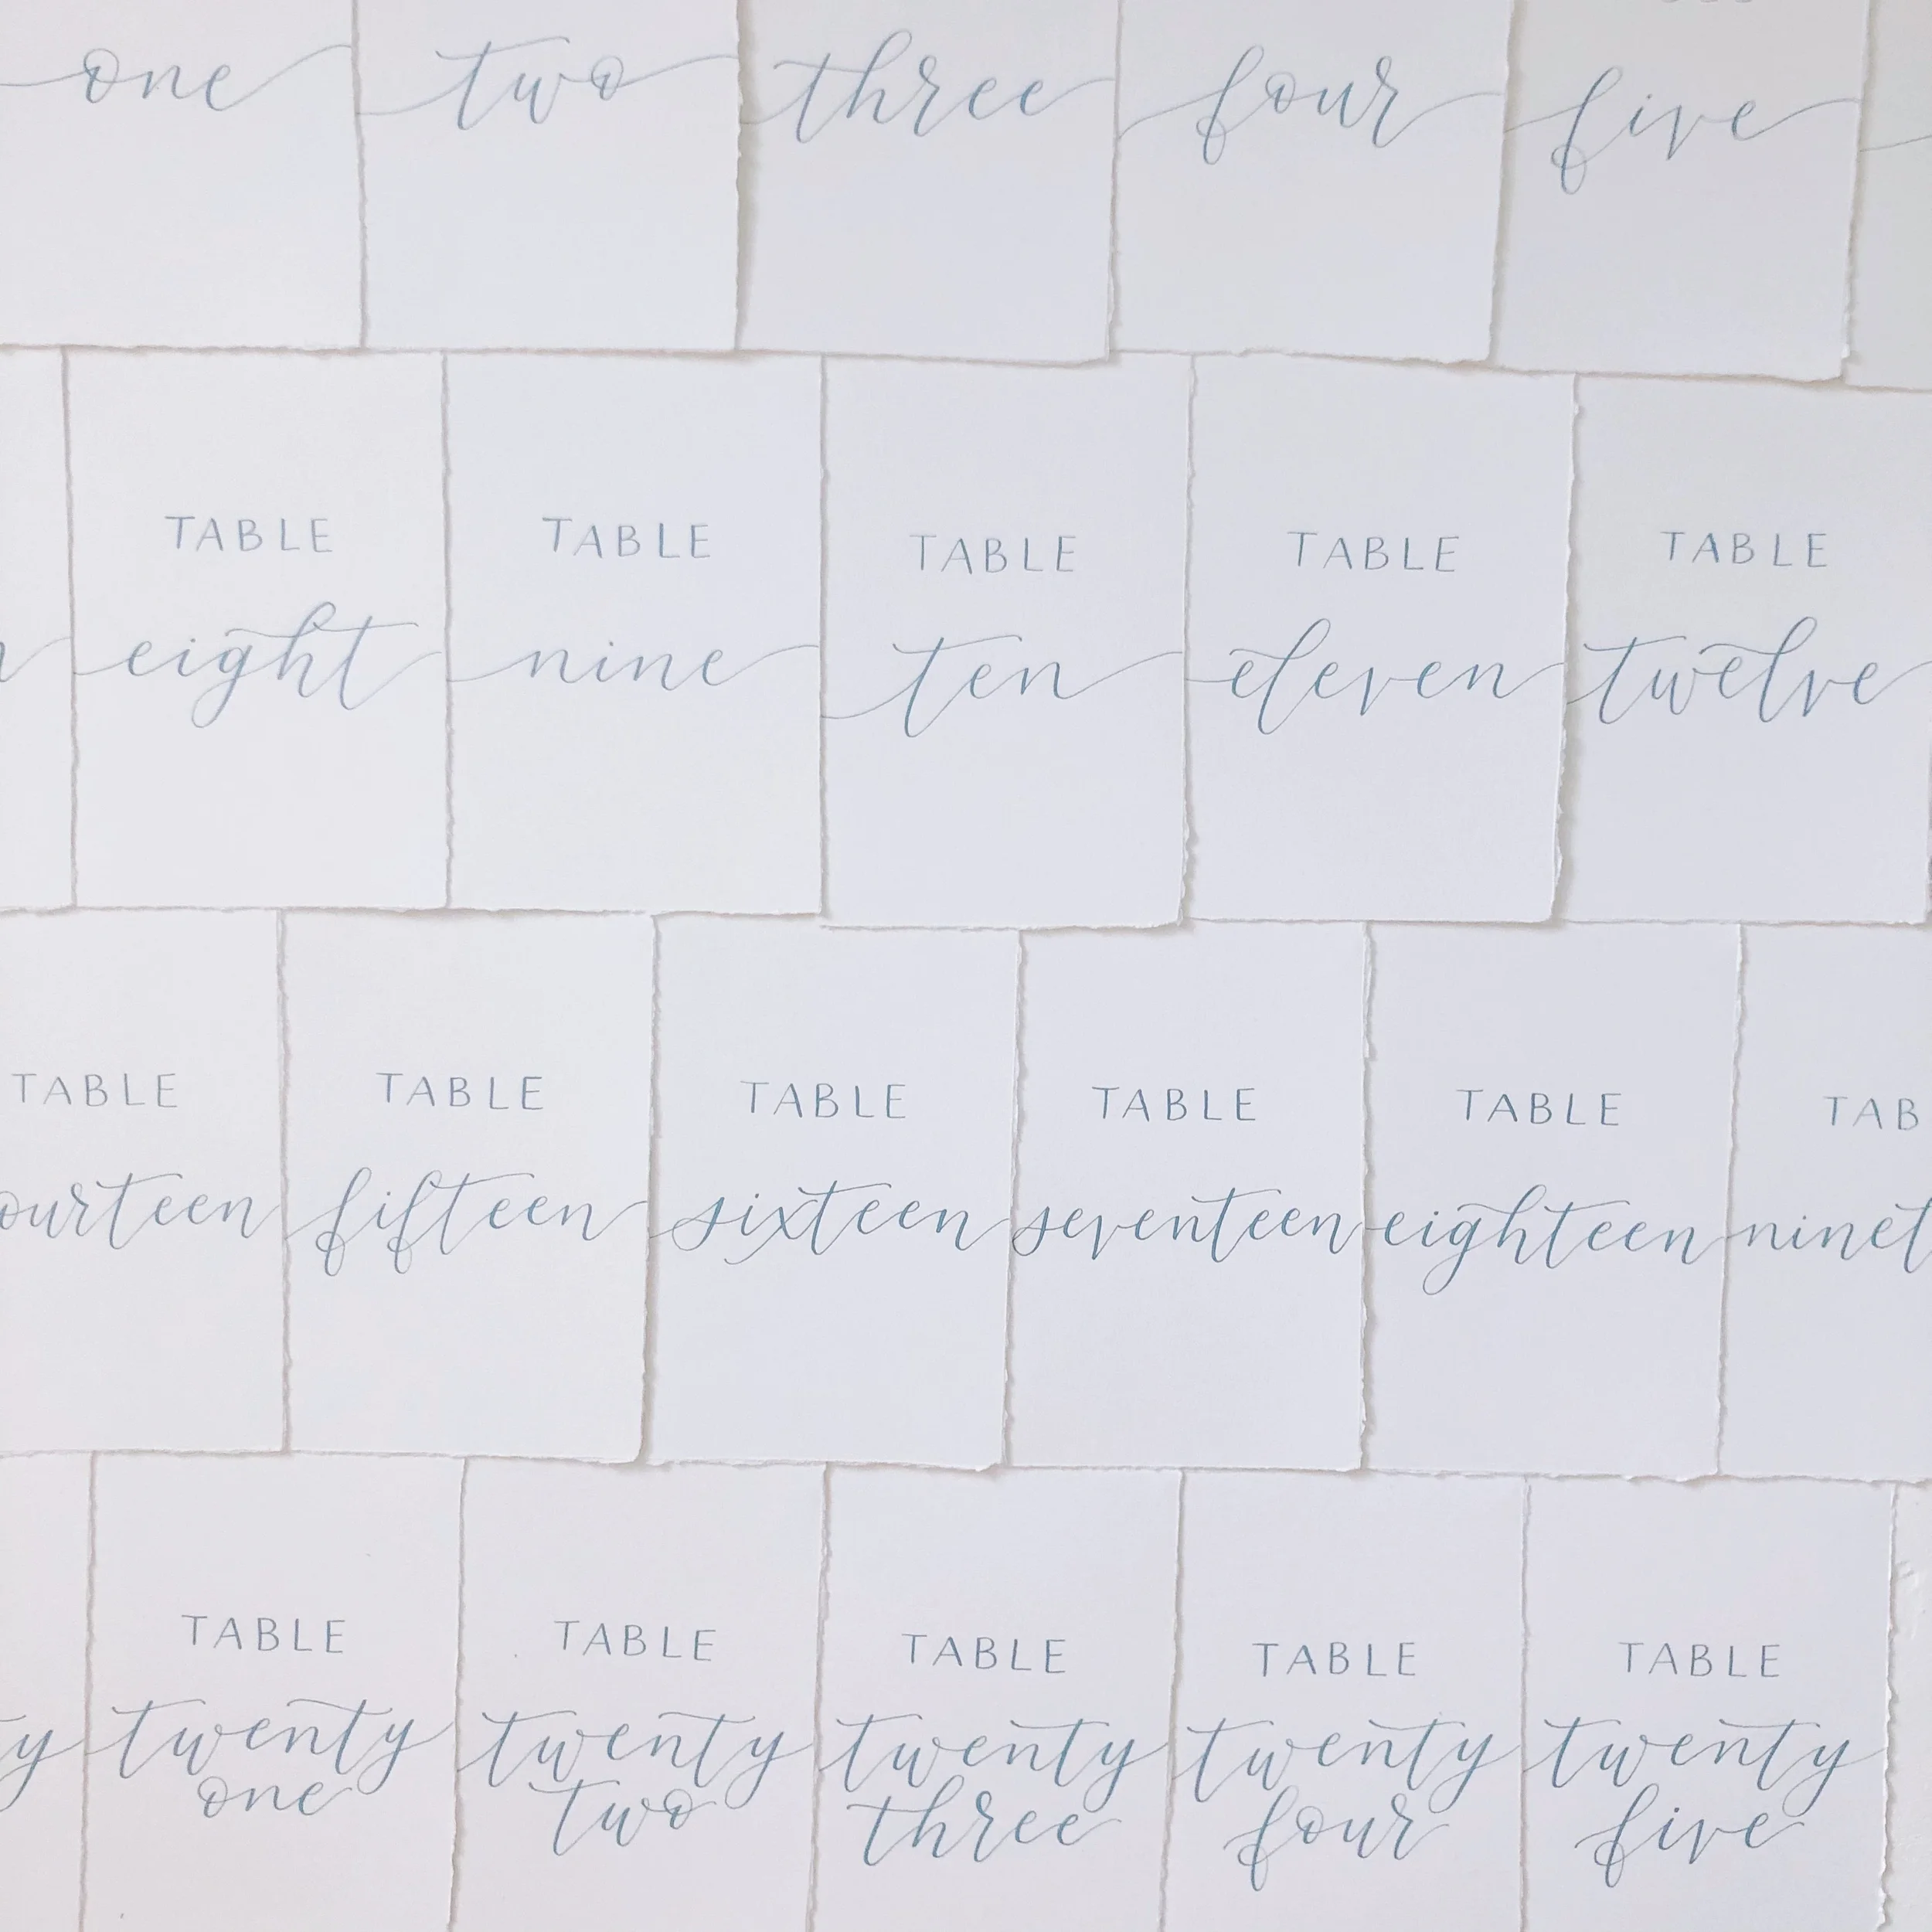 one two three four five
TABLE TABLE TABLE TABLE TABLE
eight nine ten eleven twelve
TABLE TABLE TABLE TABLE TABLE TAB
ourteen fifteen sixteen seventeen eighteen ninet
TABLE TABLE TABLE TABLE TABLE
y twenty twenty twenty twenty twenty
one two three four five